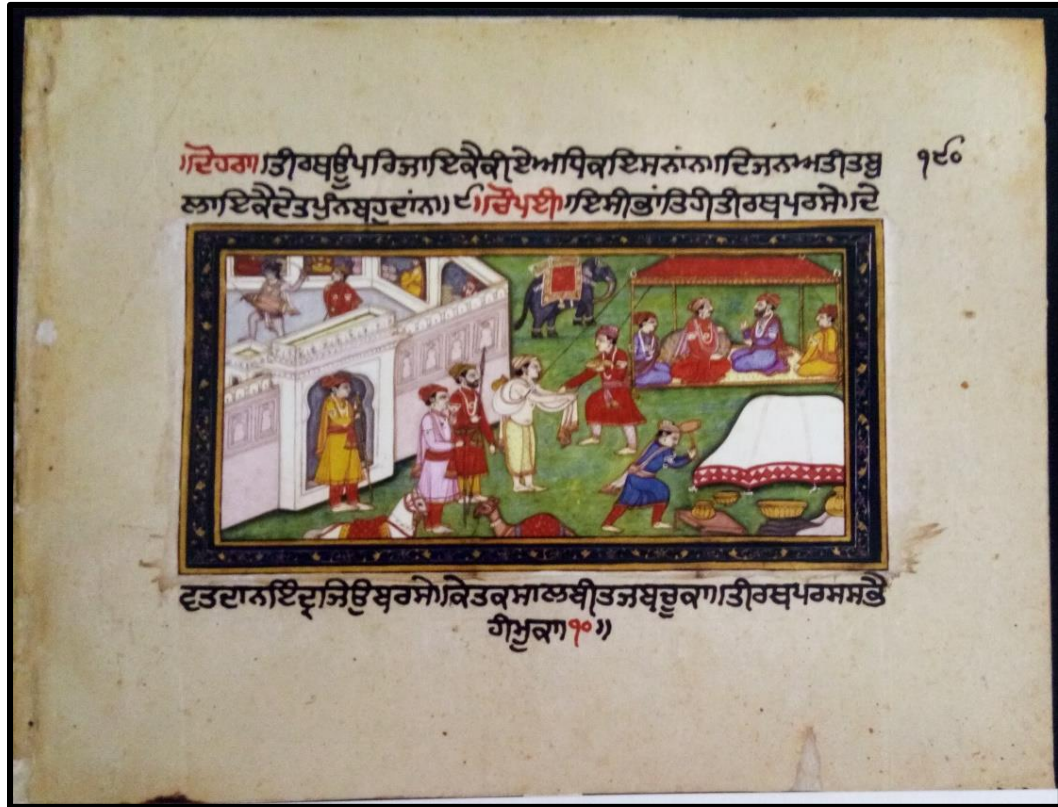 ।ਦੋਹਰਾ।।ਤੀਰਥਊਪਰਿਜਾਇਕੈਕੀਏਅਧਿਕਇਸਨਾਂਨ।।ਦਿਜਨਅਤੀਤਬੁ ੧੯੦
ਲਾਇਕੈਦੇਤਪੁੰਨਬਹੁਦਾਂਨ।।੯।।ਚੌਪਈ।।ਇਸੀਭਾਂਤਿਹੀਤੀਰਥਪਰਸੇ।।ਦੇ
ਵਤਦਾਨਇੰਦ੍ਰਜਿਉਬਰਸੇ।ਕਿਤਕਸਾਲਬੀਤਜਬਚੂਕਾ।।ਤੀਰਥਪਰਸਸਭੈ
ਹੀਮੁਕਾ।।੧੦।।